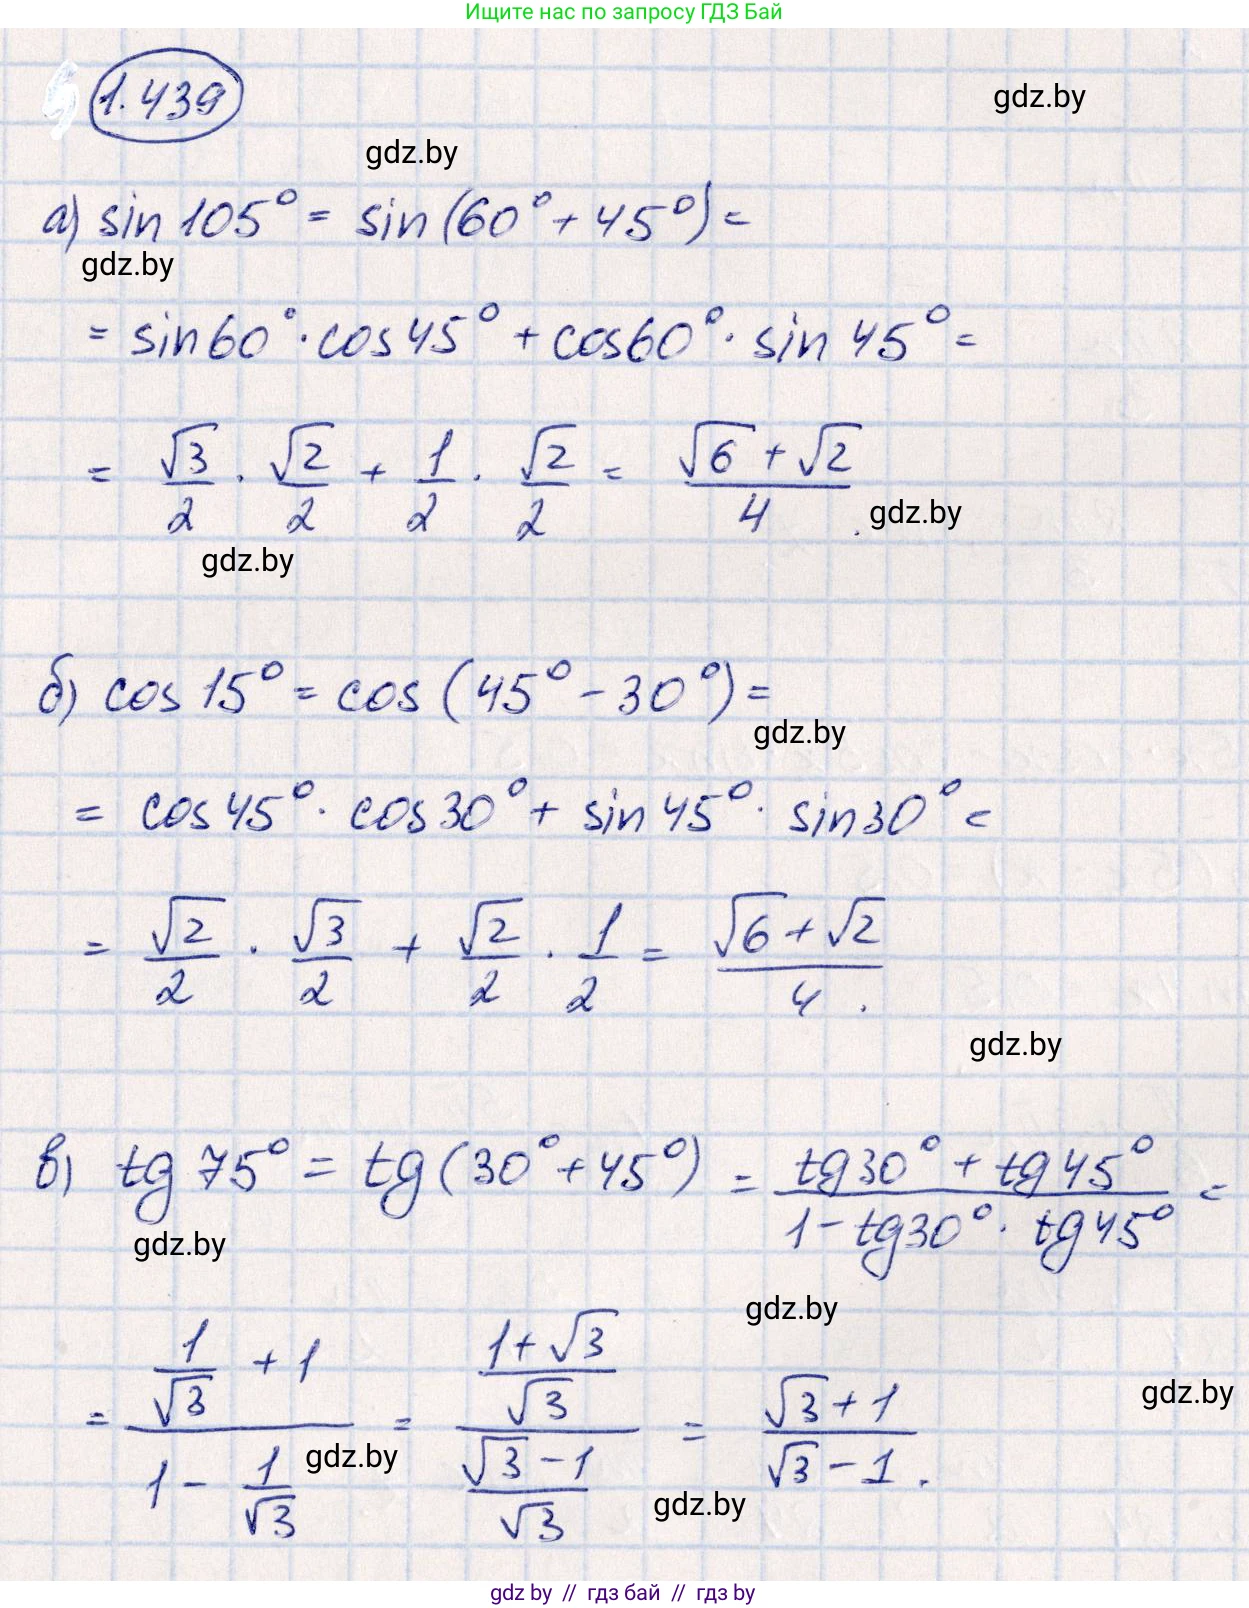 Ищите нас по запросу ГДЗ Бай
1.439
gdz.by
gdz.by
а) sin 105° = sin (60° + 45°) =
gdz.by
= sin 60° · cos 45° + cos 60° · sin 45° =
= √3/2 · √2/2 + 1/2 · √2/2 = (√6 + √2)/4 .
gdz.by
gdz.by
б) cos 15° = cos (45° − 30°) =
gdz.by
= cos 45° · cos 30° + sin 45° · sin 30° =
= √2/2 · √3/2 + √2/2 · 1/2 = (√6 + √2)/4 .
gdz.by
в) tg 75° = tg (30° + 45°) = (tg 30° + tg 45°)/(1 − tg 30° · tg 45°) =
gdz.by
gdz.by
= (1/√3 + 1)/(1 − 1/√3) = ((1 + √3)/√3)/((√3 − 1)/√3) = (√3 + 1)/(√3 − 1) .
gdz.by
gdz.by
gdz.by
gdz by // гдз бай // гдз by